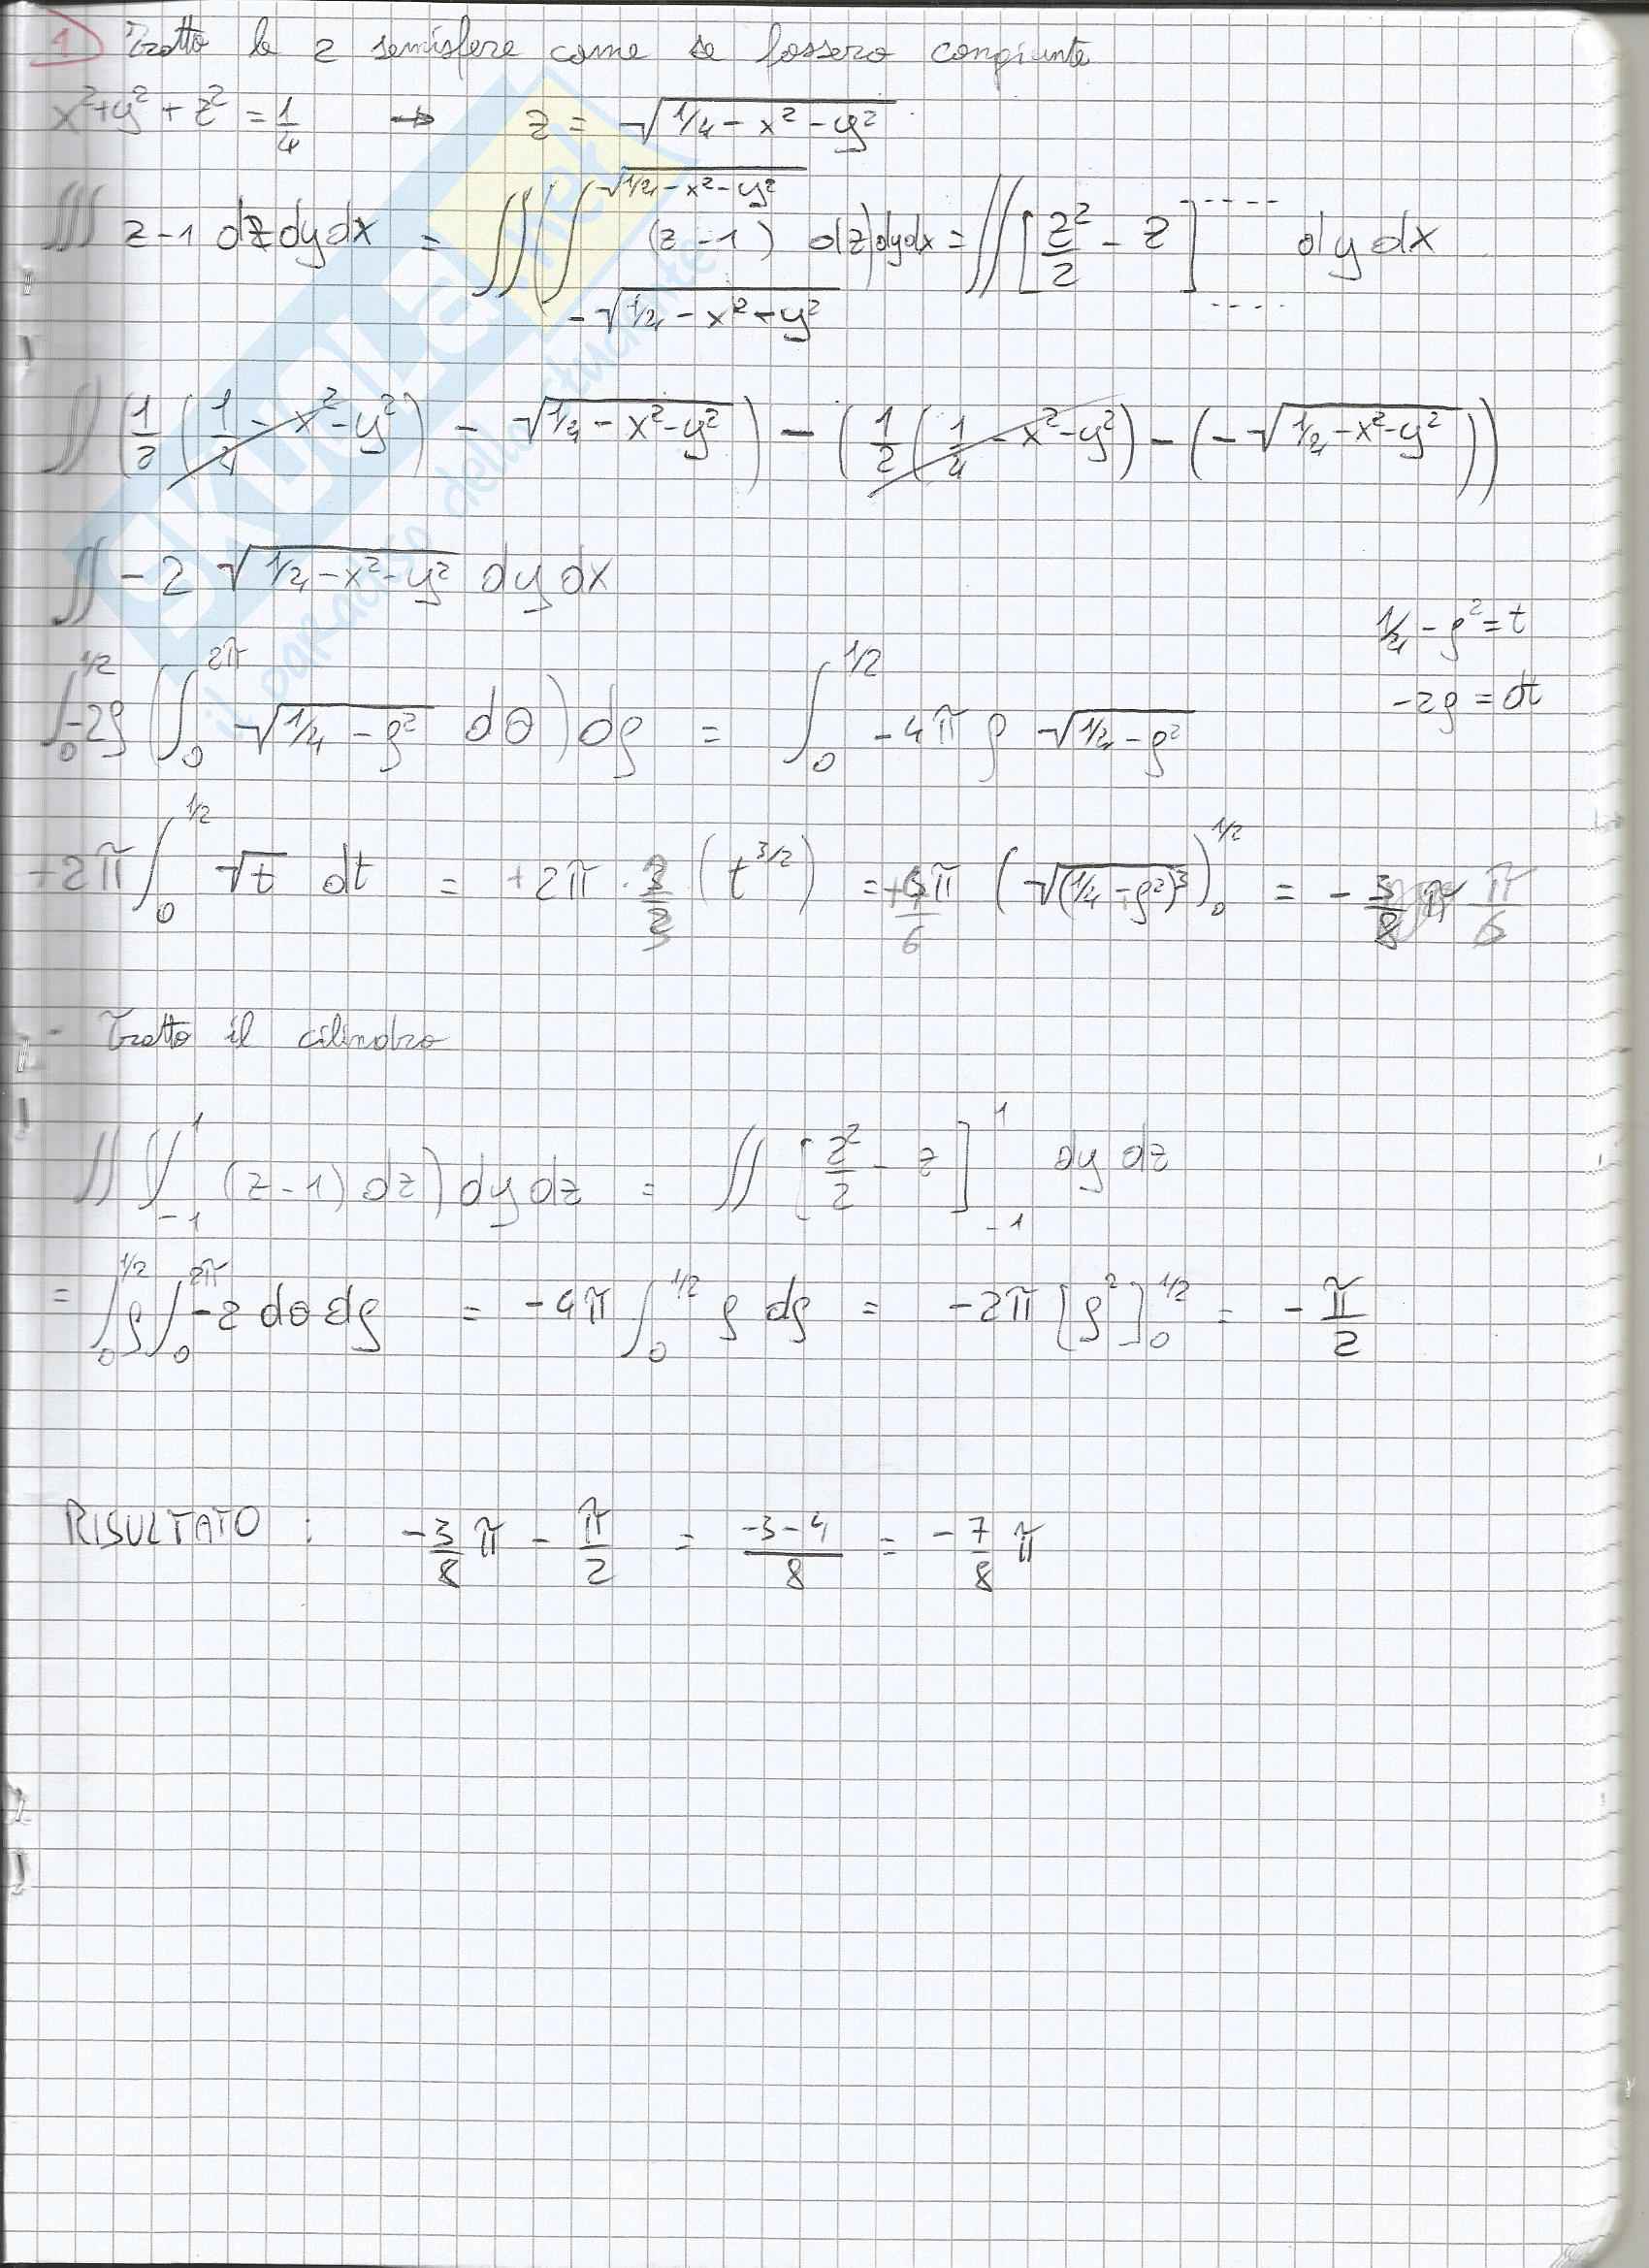 1) Tratto le 2 semisfere come se fossero congiunte
x²+y²+z² = 1/4 → z = √(1/4 - x² - y²)
∭ z-1 dz dy dx = ∬(∫_{-√(1/4-x²-y²)}^{√(1/4-x²-y²)} (z-1) dz) dy dx = ∬[z²/2 - z] ---- ---- dy dx
∬ (1/2 (1/4 - x² - y²) - √(1/4 - x² - y²)) - (1/2 (1/4 - x² - y²) - (-√(1/4 - x² - y²)))
∬ -2 √(1/4 - x² - y²) dy dx
1/4 - ρ² = t
-2ρ = dt
∫_0^{1/2} -2ρ (∫_0^{2π} √(1/4 - ρ²) dθ) dρ = ∫_0^{1/2} -4π ρ √(1/4 - ρ²)
+2π ∫_0^{1/2} √t dt = +2π · (t^{3/2}) = π (√(1/4 - ρ²)³)_0^{1/2} = - 3/8 π π/6
- Tratto il cilindro
∬(∫_{-1}^{1} (z-1) dz) dy dz = ∬ [z²/2 - z]_{-1}^{1} dy dz
= ∫_0^{1/2} ρ ∫_0^{2π} -2 dθ dρ = -4π ∫_0^{1/2} ρ dρ = -2π [ρ²]_0^{1/2} = - π/2
RISULTATO : -3/8 π - π/2 = (-3-4)/8 = - 7/8 π
SKUOLA.net
il paradiso dello studente